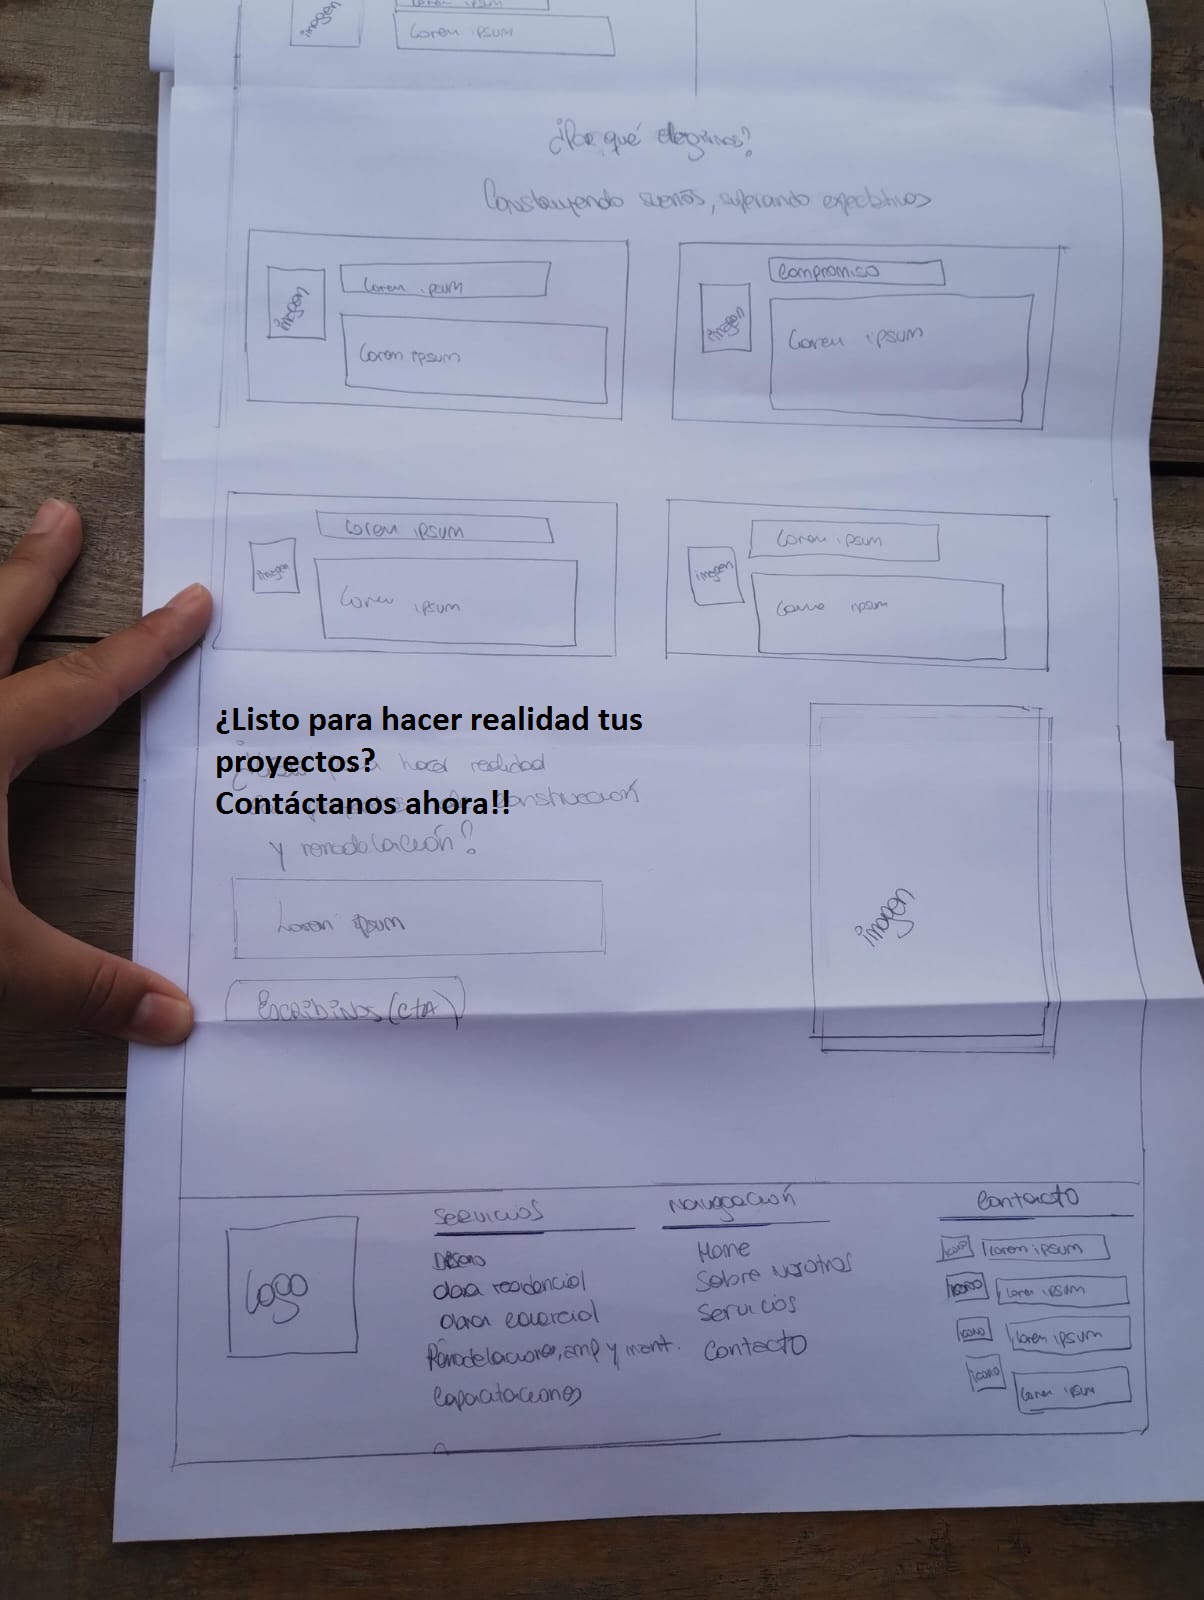 Lorem ipsum
imagen
Lorem ipsum
¿Por qué elegirnos?
Construyendo sueños, superando expectativas
imagen
Lorem ipsum
Lorem ipsum
imagen
Compromiso
Lorem ipsum
imagen
Lorem ipsum
Lorem ipsum
imagen
Lorem ipsum
Lorem ipsum
¿Listo para hacer realidad tus
proyectos?
Contáctanos ahora!!
hacer realidad
construcción
y remodelación?
Lorem ipsum
Escribinos (CTA)
imagen
Logo
Servicios
Diseño
Obra residencial
Obra comercial
Remodelaciones, amp y mant.
Capacitaciones
Navegación
Home
Sobre nosotros
Servicios
Contacto
Contacto
icono Lorem ipsum
icono Lorem ipsum
icono Lorem ipsum
icono Lorem ipsum